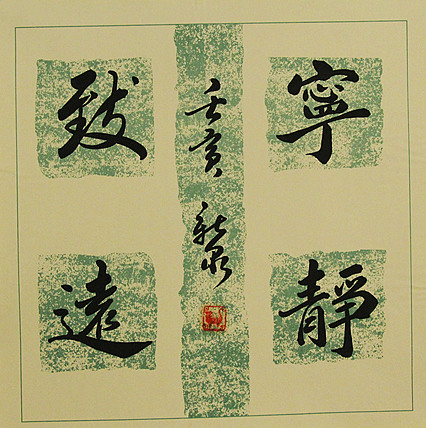 寧靜
致遠
壬寅